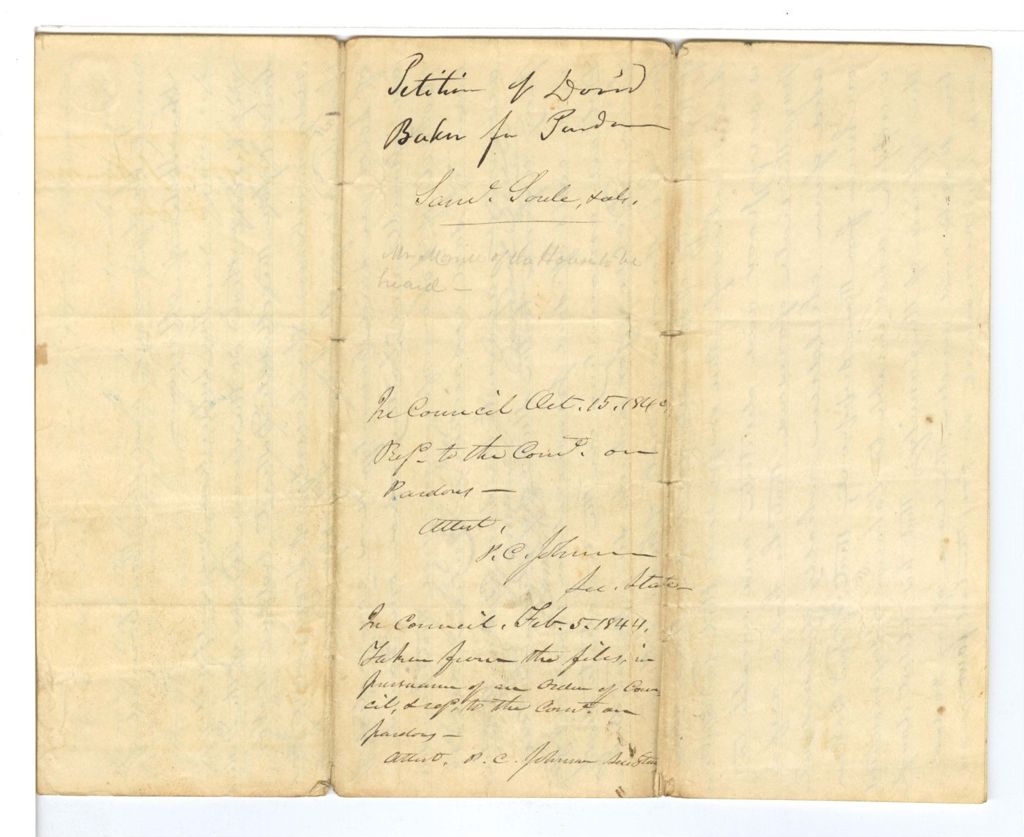 Petition of David
Baker for Pardon
Saml. Soule, & als.
Mr of the House to be
heard —
In Council Oct. 15. 184
Refd. to the Comee. on
Pardons —
Attest,
P. C. Johnson
Sec. State
In Council, Feb. 5. 1844.
Taken from the files, in
pursuance of an Order of Coun
cil, & refd. to the Comee. on
pardons —
Attest, P. C. Johnson Sec. State